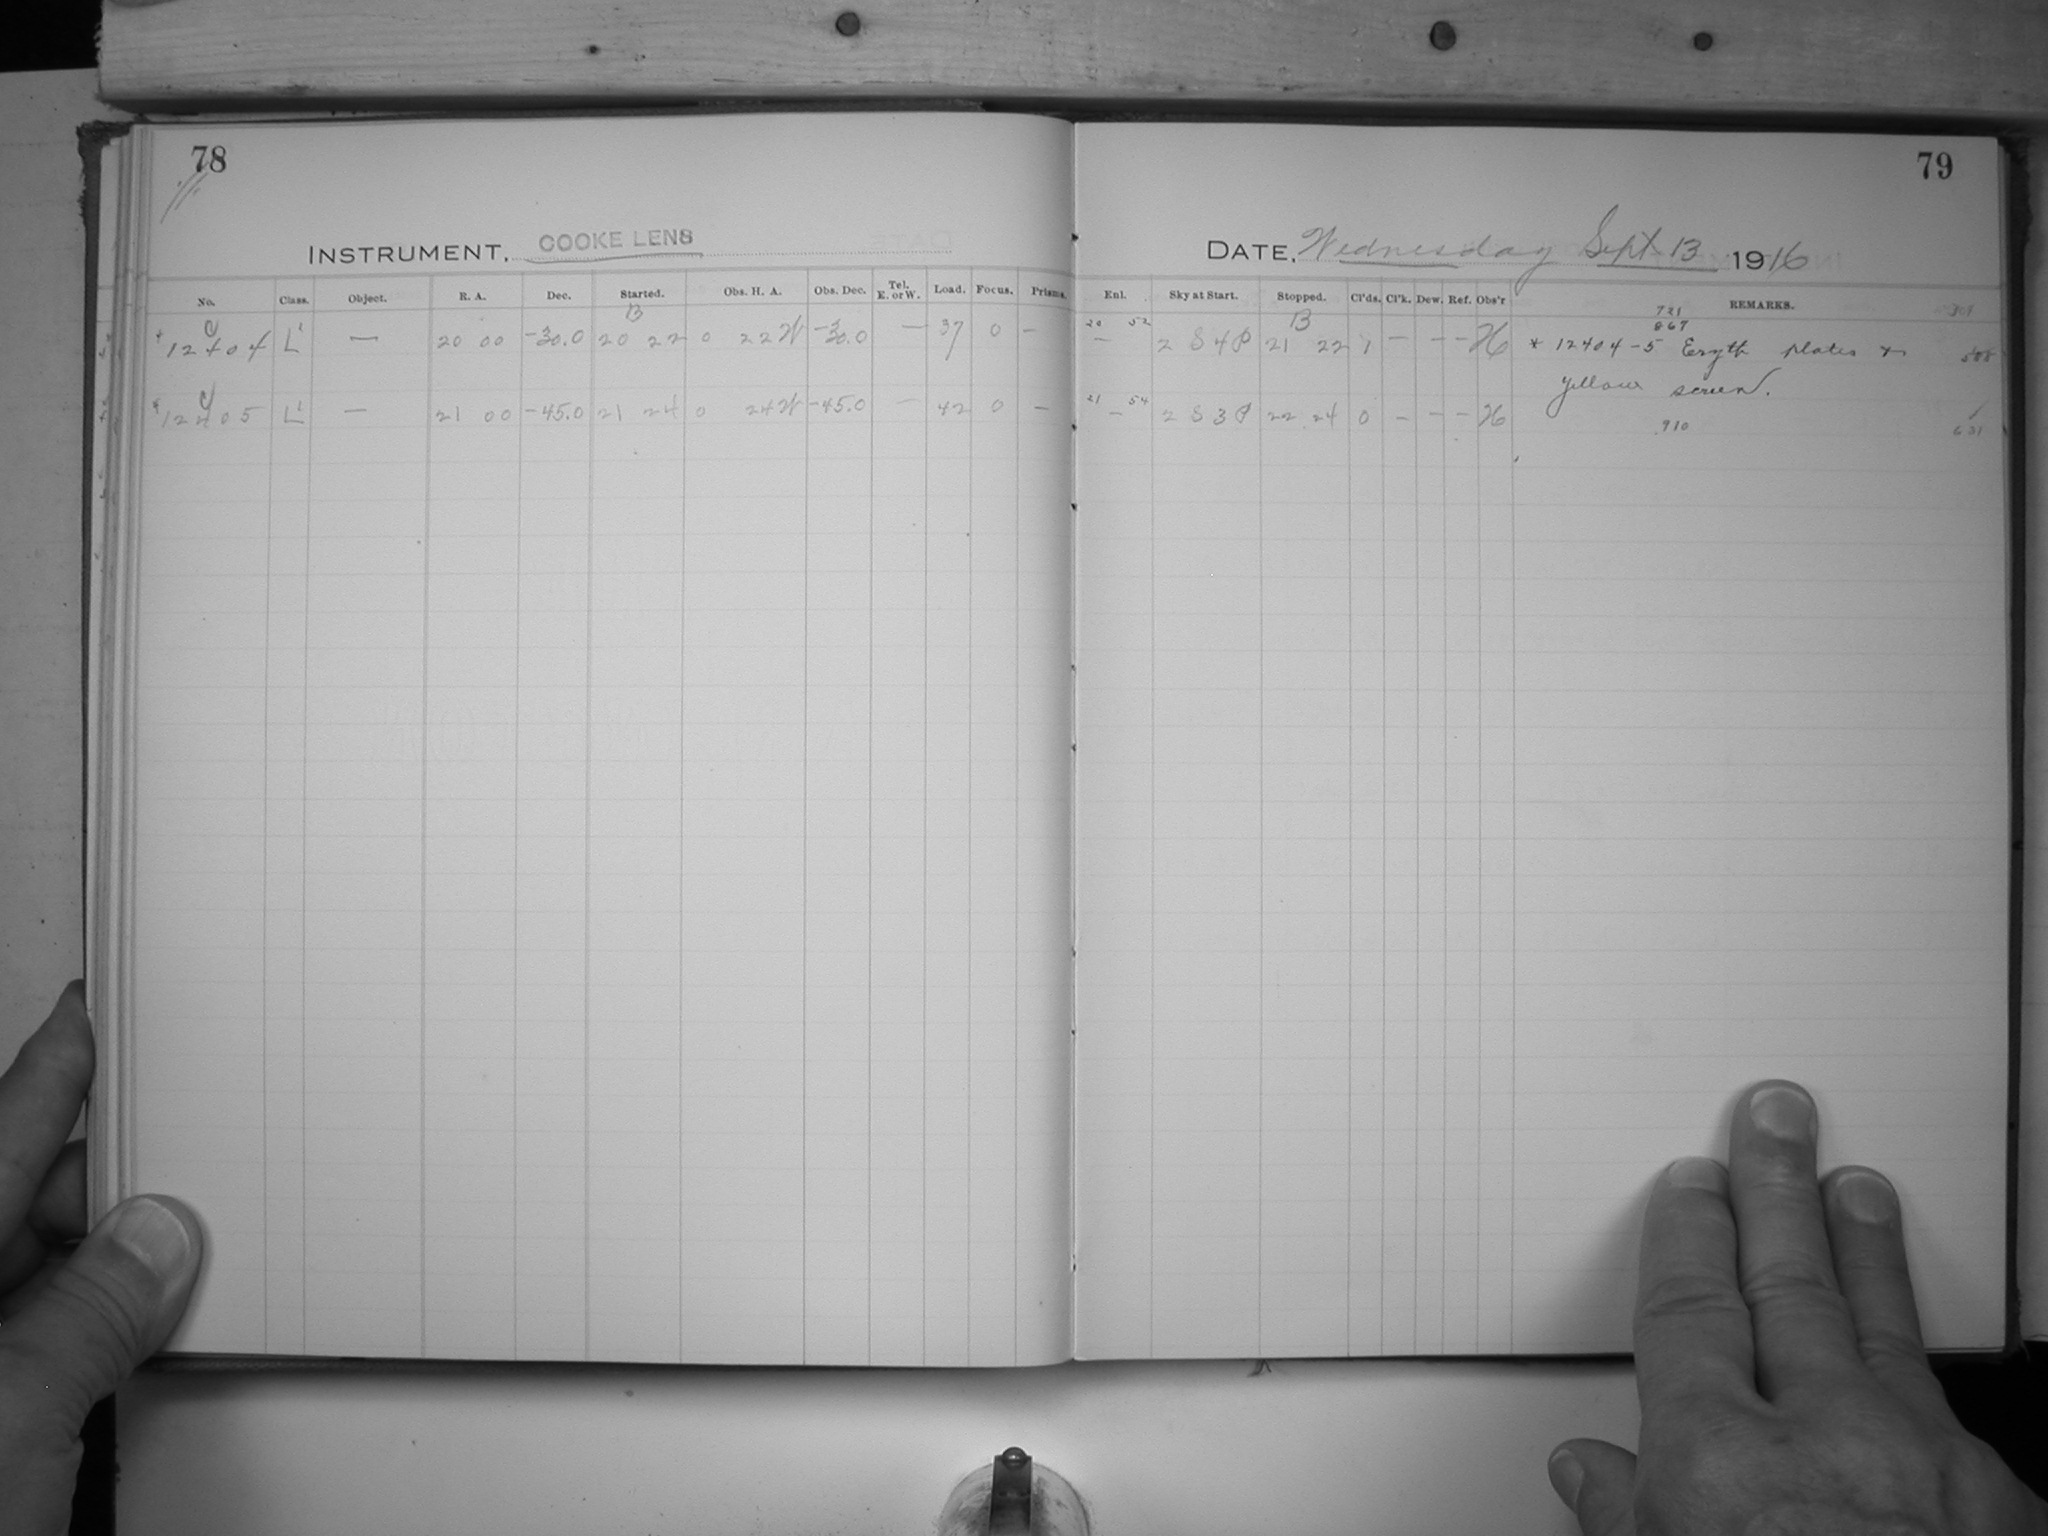 78
79
INSTRUMENT, COOKE LENS
DATE, Wednesday Sept. 13 1916
No. Class. Object. R. A. Dec. Started. Obs. H. A. Obs. Dec. Tel. E. or W. Load. Focus. Prisms. Enl. Sky at Start. Stopped. Cl'ds. Cl'k. Dew. Ref. Obs'r REMARKS.
C B 20 52 B 721 867
* 12404 L' — 20 00 -30.0 20 22 0 22 W -30.0 — 37 0 — — 2 S 4 P 21 22 1 — — — H * 12404-5 Eryth plates +
yellow screen.
C 21 54
* 12405 L' — 21 00 -45.0 21 24 0 24 W -45.0 — 42 0 — — 2 S 3 P 22 24 0 — — — H 910 631